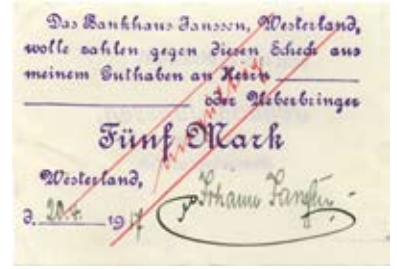 Das Bankhaus Janssen, Westerland,
wolle zahlen gegen diesen Scheck aus
meinem Guthaben an Herrn
oder Ueberbringer
Fünf Mark
Westerland,
d. 20.4. 1917 Johann